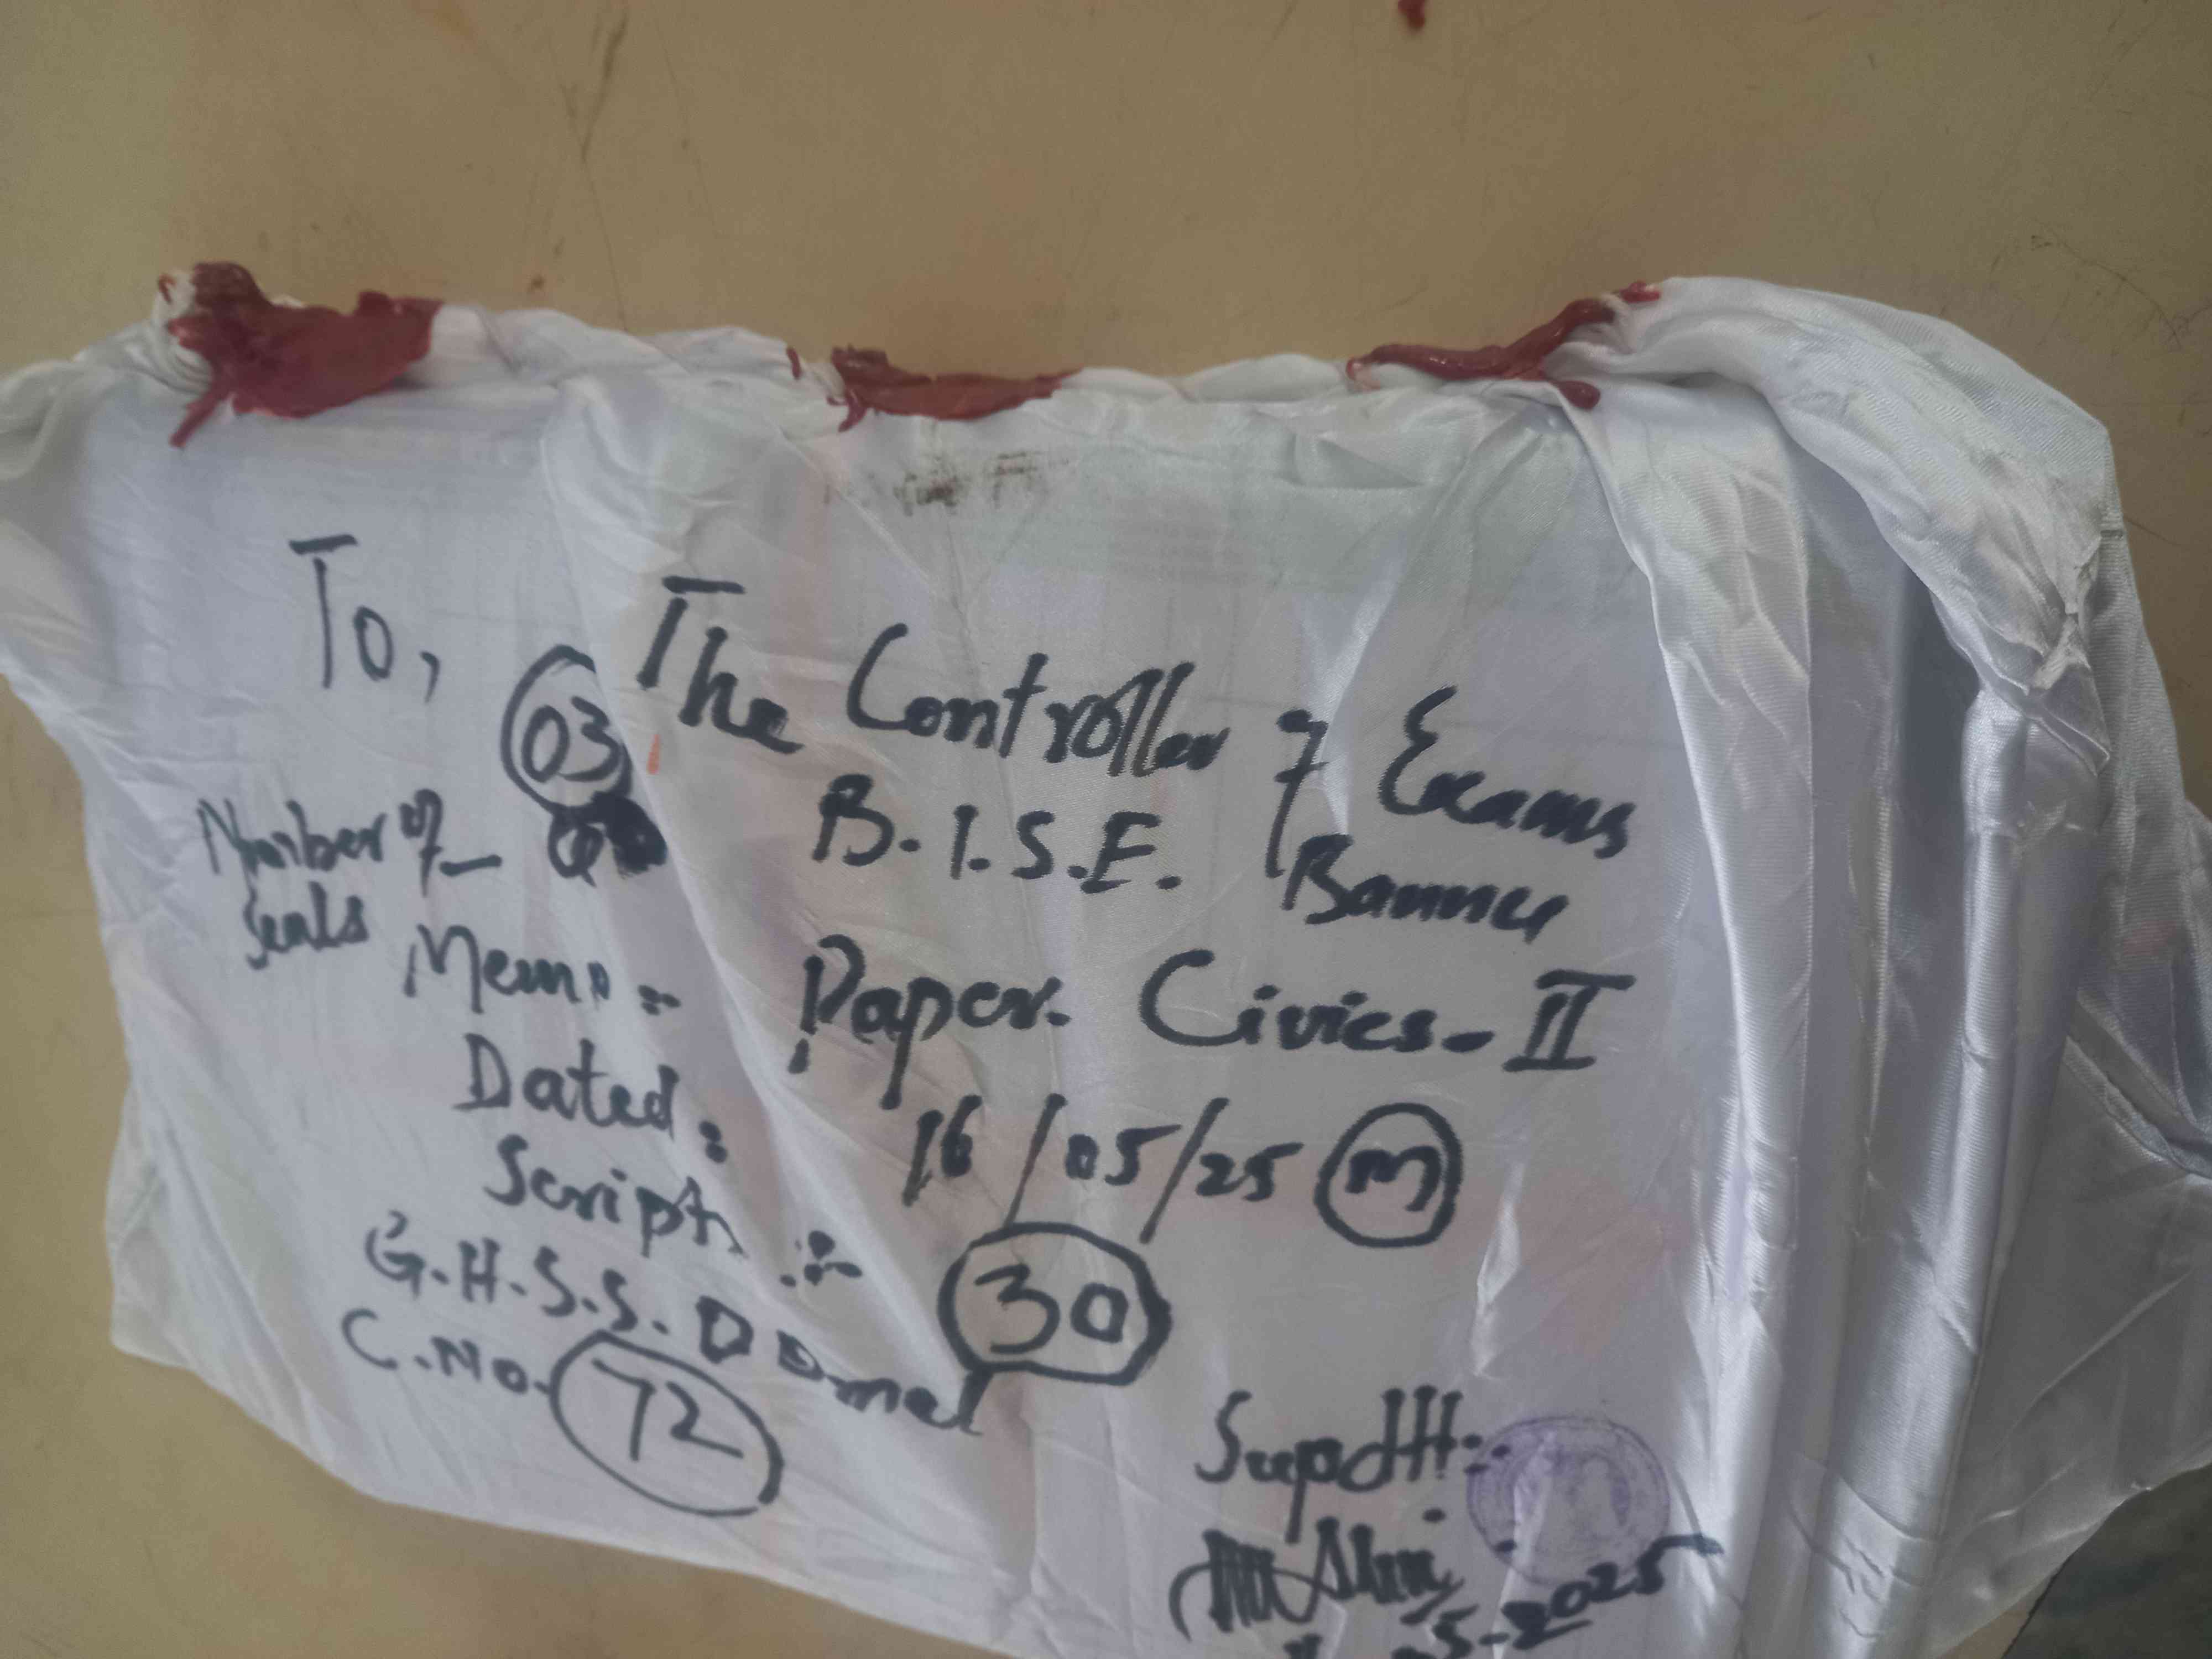 To,
The Controller of Exams
B.I.S.E. Bannu
03
Number of -
Seals
Memo :- Paper. Civics-II
Dated : 16/05/25 M
Scripts :- 30
G.H.S.S. Domel
C.No. 72
Supdtt:-
5-2025